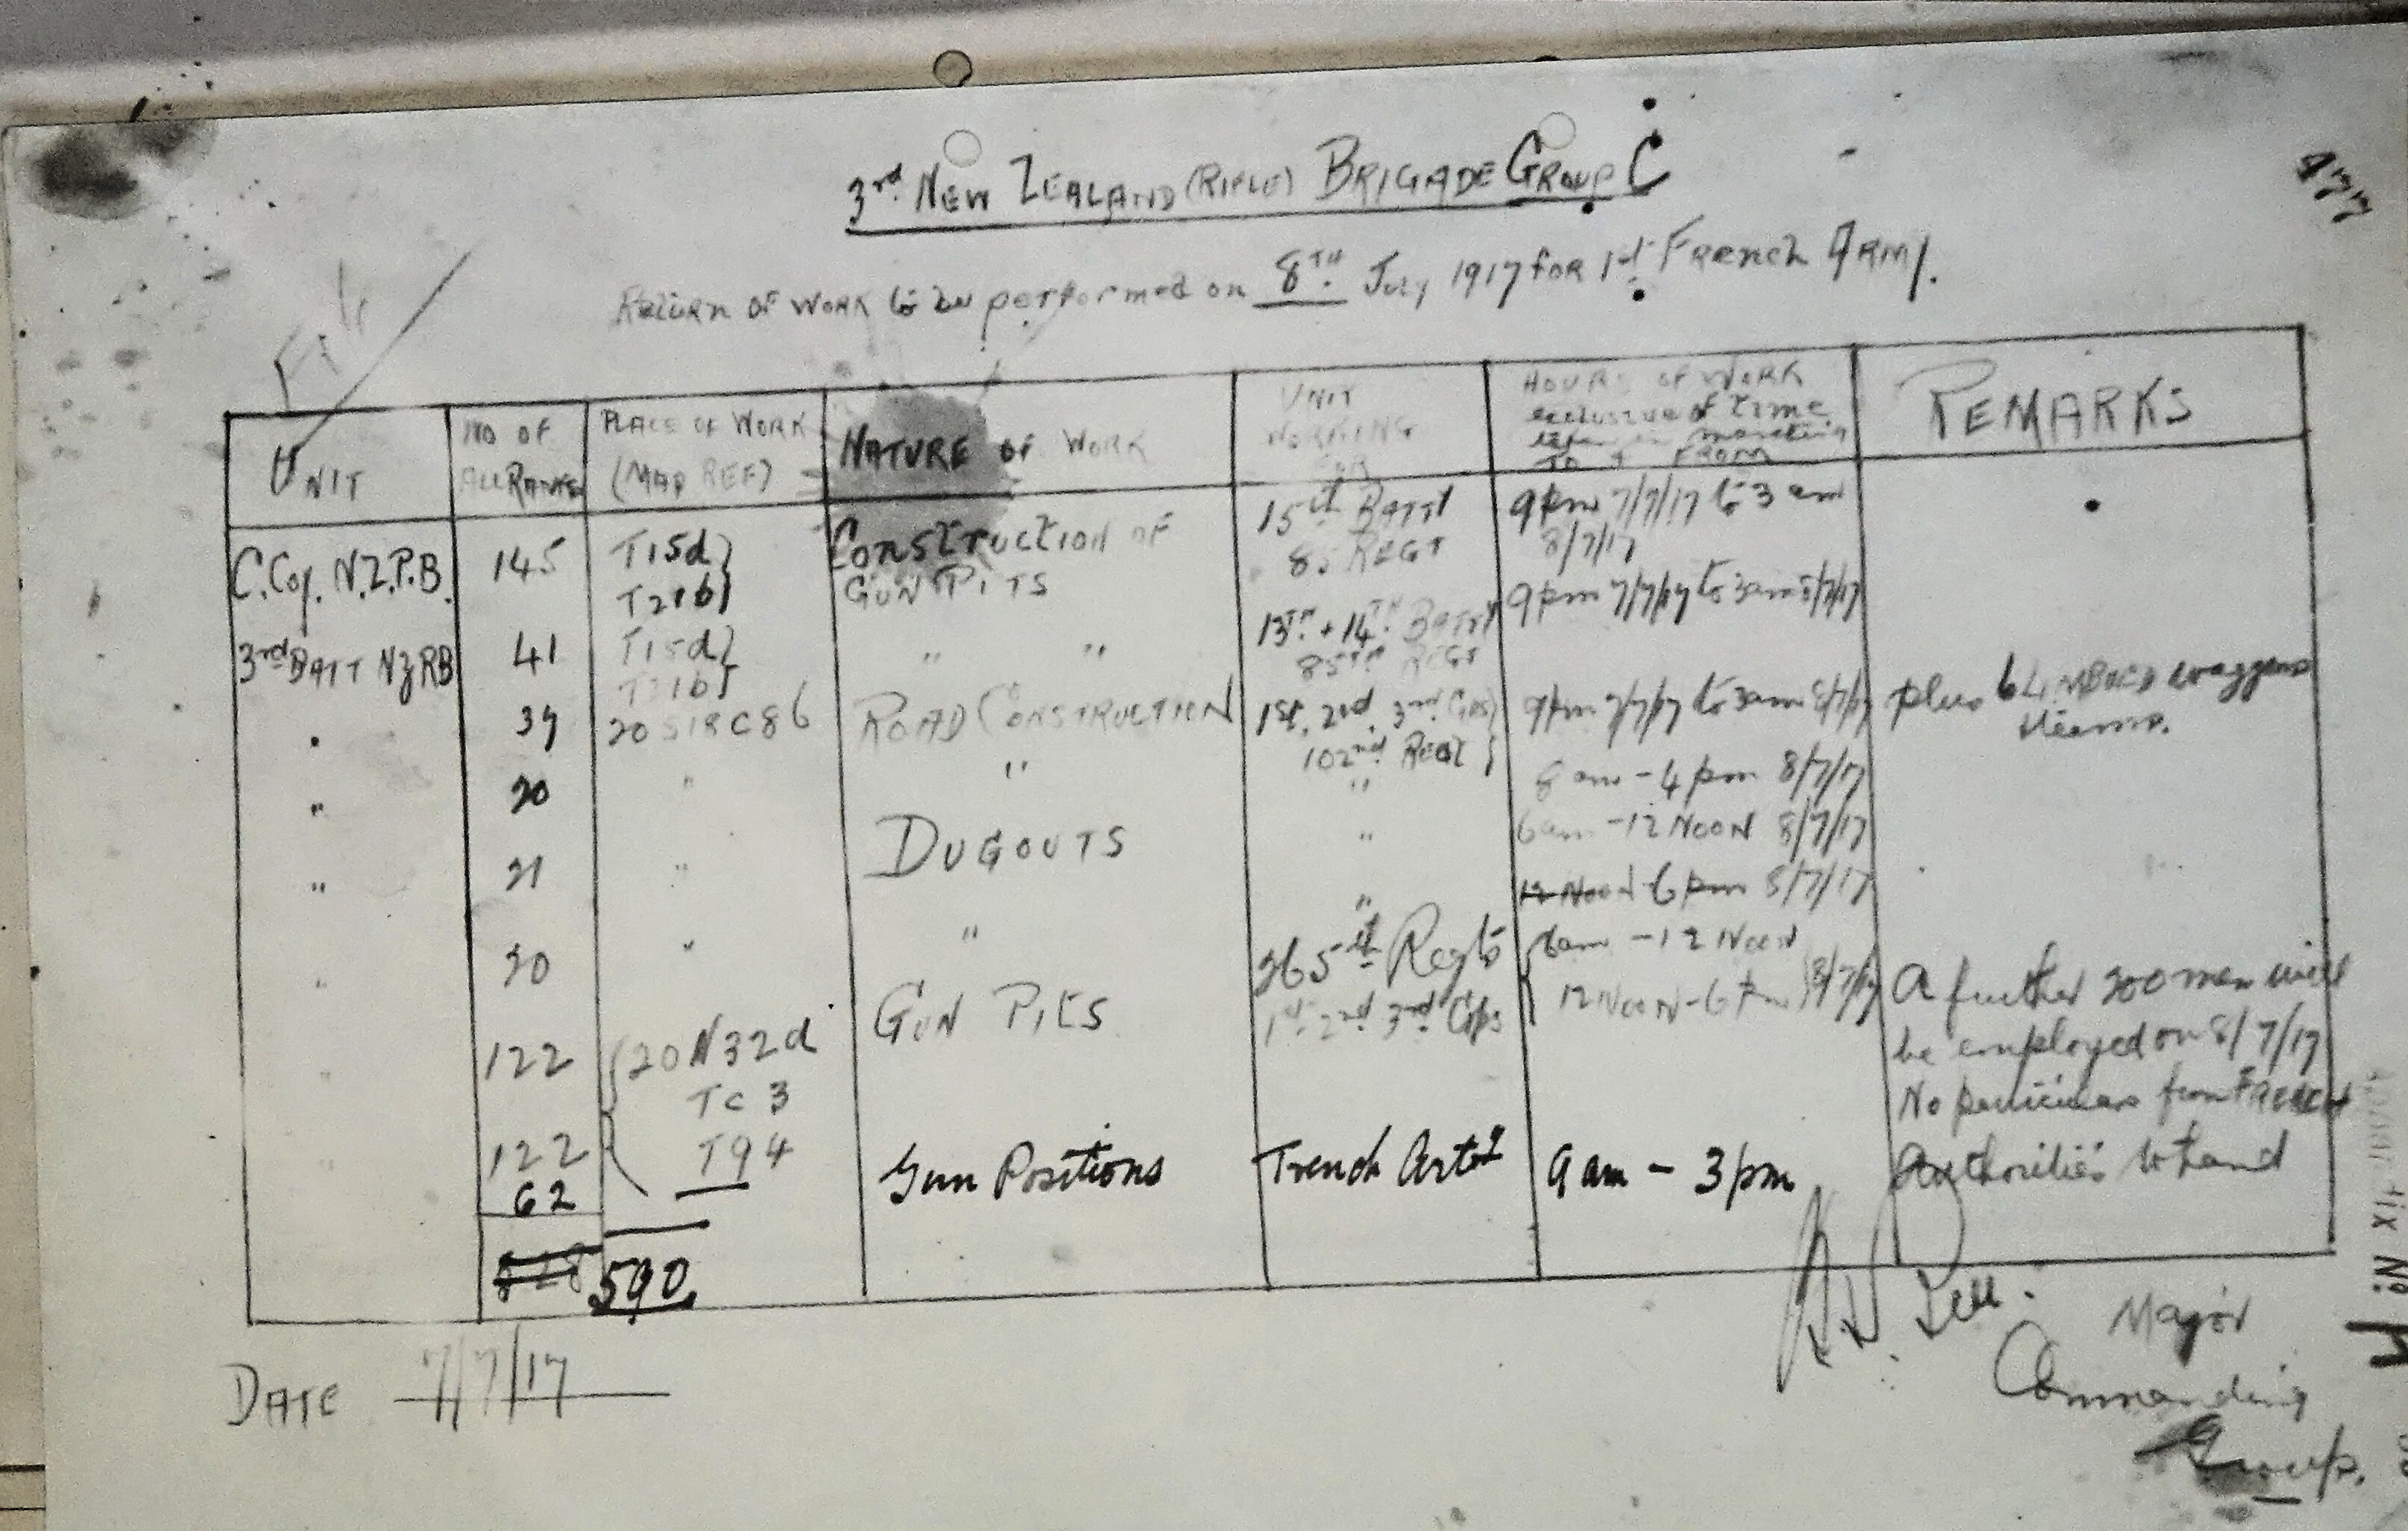 477
3rd NEW ZEALAND (RIFLE) BRIGADE GROUP C
RETURN OF WORK to be performed on 8TH July 1917 FOR 1st French ARMY.
UNIT
NO OF ALL RANKS
PLACE OF WORK (MAP REF)
NATURE OF WORK
UNIT WORKING FOR
HOURS OF WORK exclusive of time taken in marching TO & FROM
REMARKS
C. Coy. N.Z.P.B. 145 T15d} T21b} CONSTRUCTION OF GUN PITS 15th BATTY 85 REGT 9pm 7/7/17 to 3 am 8/7/17
3rd BATT NZRB 41 T15d} T21b} " " 13TH + 14TH BATTY 85TH REGT 9pm 7/7/17 to 3am 8/7/17
" 37 20 S18 C 86 ROAD CONSTRUCTION 1st, 2nd, 3rd Cps} 102nd REGT} 9pm 7/7/17 to 3am 8/7/17 plus 6 LIMBERED waggons & teams.
" 20 " " " 8 am - 4 pm 8/7/17
" 21 " DUGOUTS " 6am - 12 NOON 8/7/17
" 20 " " " 12 NOON - 6 pm 8/7/17
" 122 {20 N32d TC 3 GUN PITS 265th Regt 1st 2nd 3rd Cps {6am - 12 NOON 12 NOON - 6 pm} 8/7/17 A further 200 men will
be employed on 8/7/17
No particulars from FRENCH
Authorities to hand
" 122 T94
62 Gun Positions Trench Arty 9am - 3pm
528 590
DATE 7/7/17
Major
Commanding
Group.